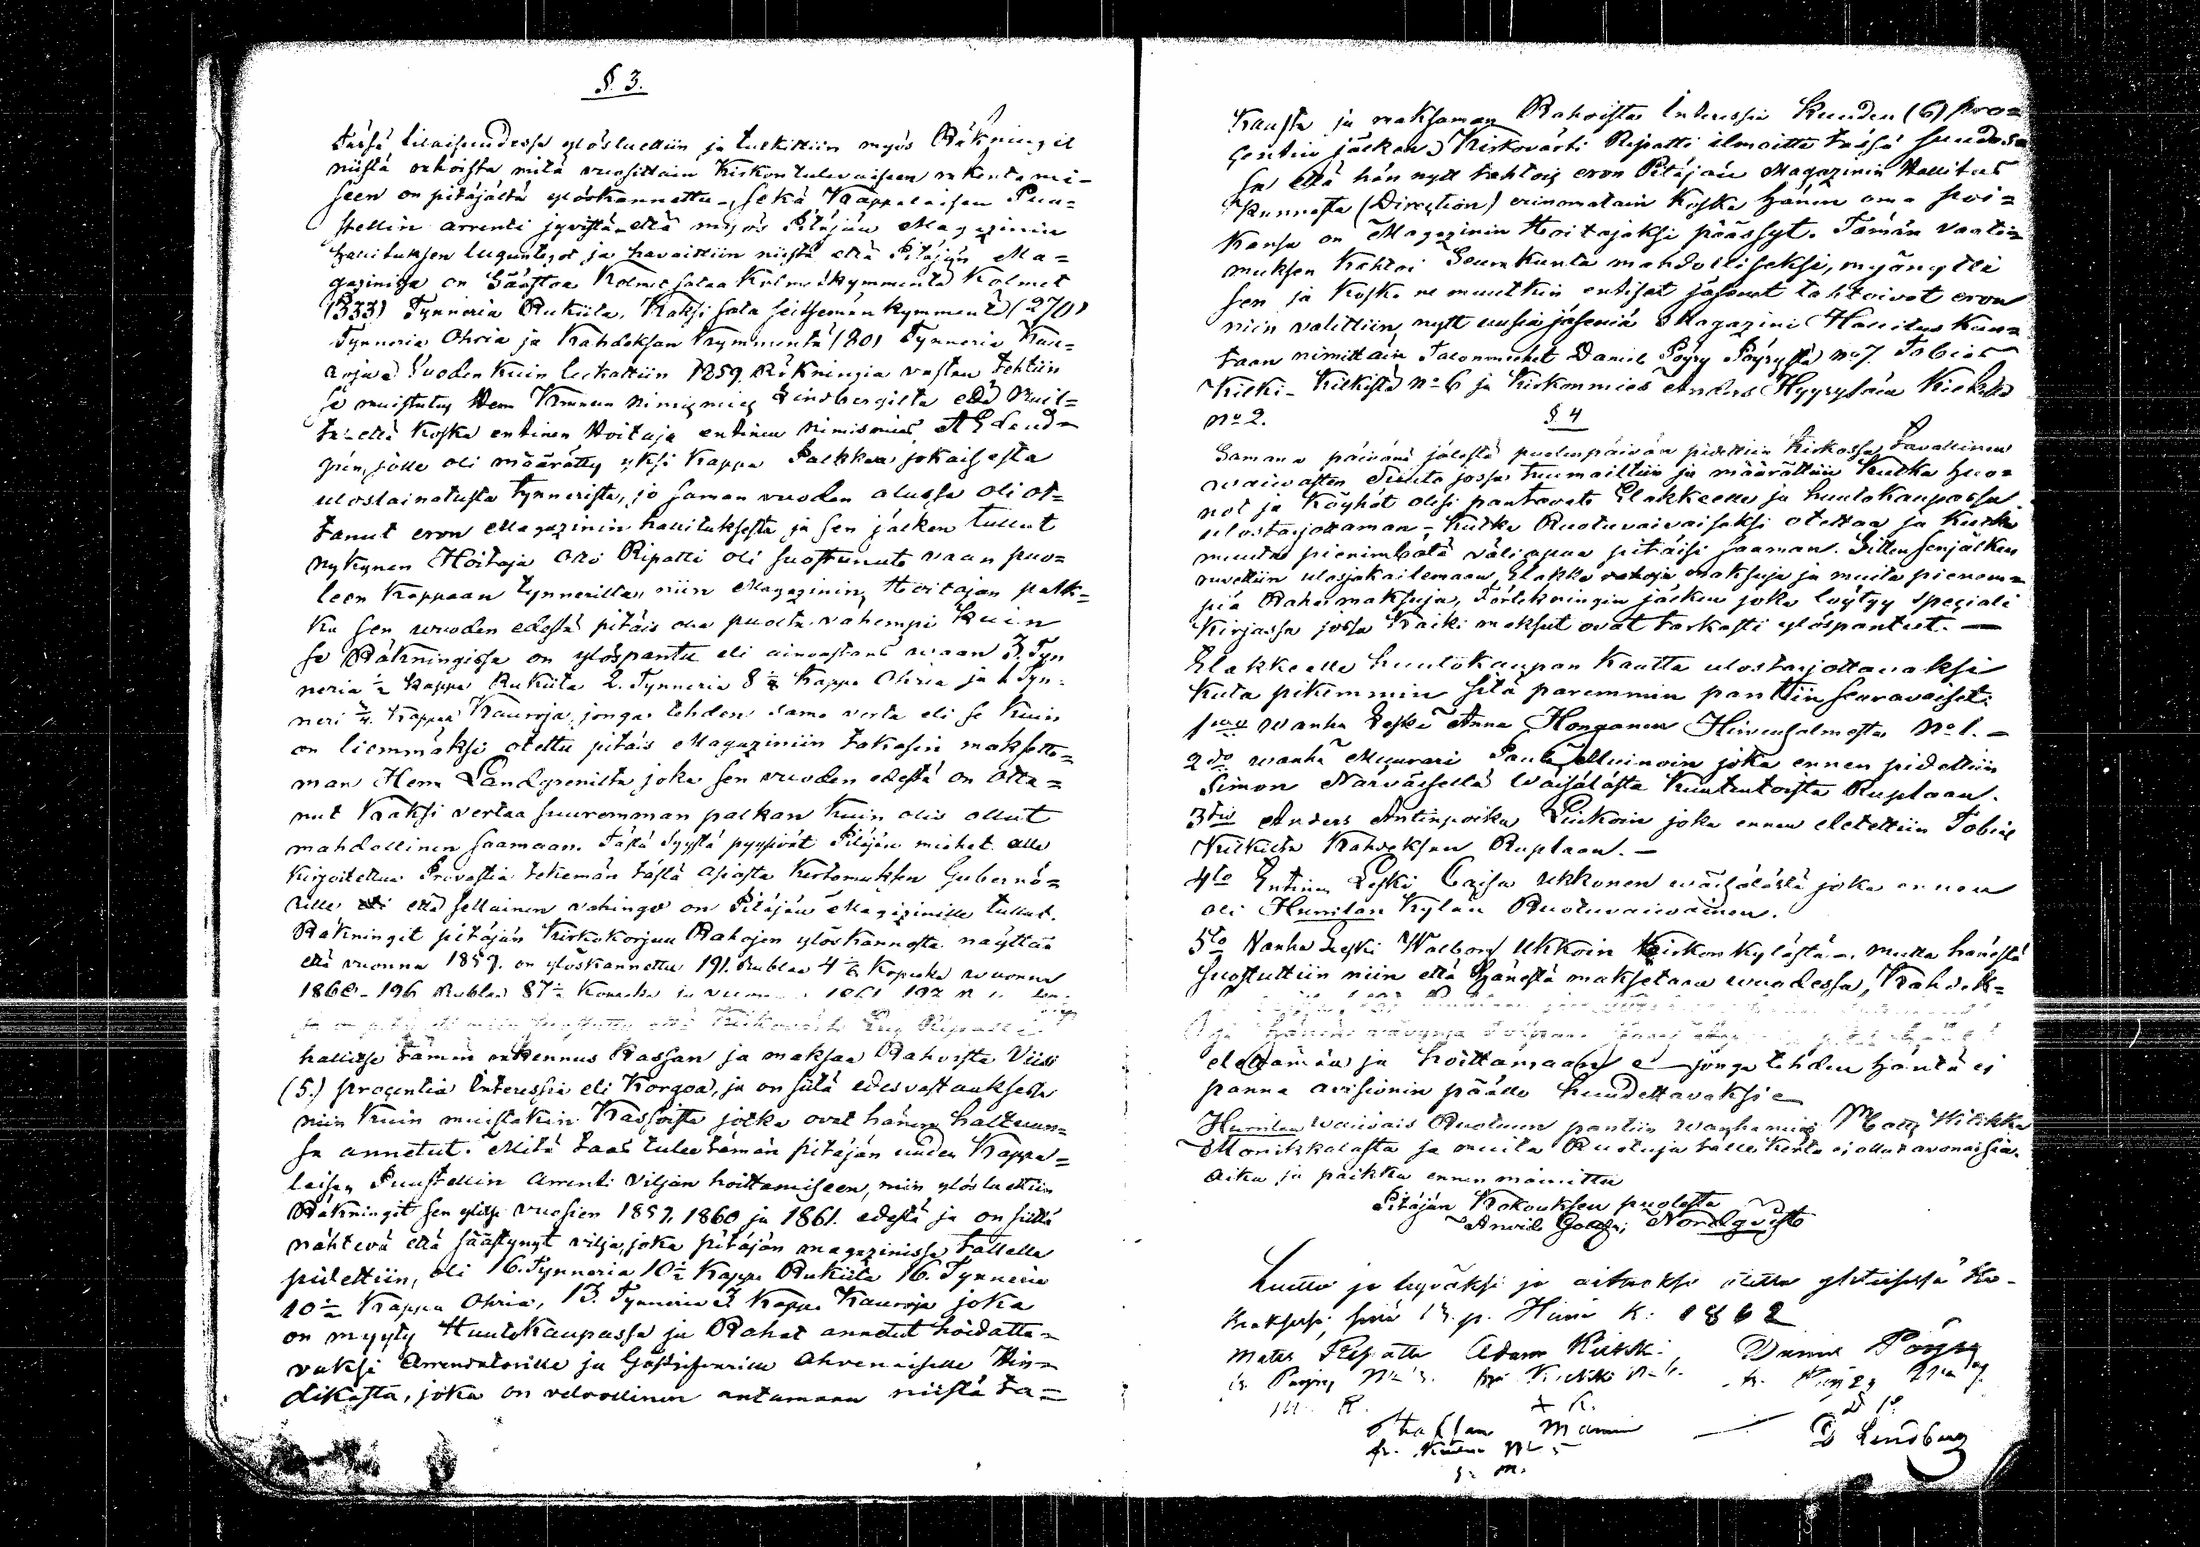 §. 3.
tässä tilaisuudessa ylösluettiin ja tutkittiin myös Räkningit
niistä rahoista mitä vuosittain Kirkon tulevaiseen rakentami-
seen on pitäjältä ylöskannettu, sekä Kappelaisen Puu-
stellin arrenti jyvistä että myös Pitäjän Magazinin
hallituksen luguntegot ja havaittiin niistä että Pitäjän Ma=
gazinissa on Säästöä Kolme sataa Kolmekymmentä Kolmet
(333) Tynneriä Rukiita, Kaksi sata seitsemän kymmentä (270)
Tynneriä Ohria ja Kahdeksan kymmentä (80) Tynneriä Kau-
roja. Vuoden kuin luckattiin 1859. Räkningia vastan tehtiin
se muistutus Herra Kruunun nimismies Lindbergiltä että muil-
ta että koska entinen Hoitaja entinen Nimismies A G Land-
grén, jolle oli määrätty yksi Kappa Palkkaa jokaisesta
uloslainatusta tynneristä, jo saman vuoden alussa oli ot=
tanut eron Magazinin hallituksesta ja sen jälken tullut
nykynen Hoitaja Olli Ripatti oli suostunut vaan puo=
leen Kappaan tynneriltä, niin Magazinin Hoitajan palk=
ka sen vuoden edestä pitäis olla puolta vähempi kuin
se Räkningissa on ylöspantu eli ainoastans waan 3. Tyn
neria ½ kappa Rukiita 2. Tynneria 8 ½ Kappa Ohria ja 1 Tyn-
neri Kappaa Kauroja, jonga tehden sama verta eli se kuin
on liemmäksi otettu pitäis Magaziniin takasin maksetta=
man Herra Landgrenilta joka sen vuoden edestä on otta=
nut Kaksi vertaa suuremman palkan kuin olis ollut
mahdollinen saamaan. Tästä syystä pyysivät Pitäjän miehet alla
kirjoitettua Provastia tekemän tästä asiasta Kertomuksen Gubernö=
rille että sellainen vahingo on Pitäjän Magazinille tullut.
Räkningit pitäjän Kirkokorjuu Rahojen ylöskannosta näyttää
että vuonna 1859. on ylöskannettu 191. Rublaa 4 ½ Kopeka vuonna
1860 - 196 Rublaa 87 ½ Kopeka ja vuonna 1861 192
hallitse tämän rakennus Kassan ja maksaa Rahoista Viisi
(5.) procentia Interessia eli Korgoa, ja on siitä edesvastauksessa
niin kuin muistakin Kassoista jotka ovat hänen haltuun=
sa annetut. Mitä taas tulee tämän pitäjän uuden Kappa=
laisen Puustellin Arrenti viljan hoittamiseen, niin ylösluettiin
Räkningit sen ylitse vuosien 1859, 1860 ja 1861. edestä ja on siittä
nähtevä että säästynyt vilja, joka pitäjän magazinissa tallella
pidettiin, oli 16. Tynneria 10 ½ Kappa Rukiita 16. Tynneria
10 ½ Kappa Ohria, 13. Tynneria 3 Kappa Kauroja joka
on myyty Huutokaupassa ja Rahat annetut hoidatta=
vaksi Arrendatorille ja Gästgifvarille Ahvenaiselle Hin=
dikasta, joka on velvollinen antamaan niistä ta=
Kausta ja maksaman Rahoista Interessia Kuuden (6) pro=
centin jälken. Kirkovärti Ripatti ilmoitta tässä huudossa
sa että hän nytt tahtois eron Pitäjän Magazinin Hallitus
Kunnasta (Direction) erinomatain koska hänen oma poi=
kansa on Magazinin Hoitajaksi päässyt. Tämän vaati=
muksen kahtoi Seurakunta mahdolliseksi, myönytti
sen ja koska ne muutkin entiset jäsenet tahtoivat eron
niin valittiin nytt uusia jäseniä Magazini Hallitus Kun=
taan nimittäin Talonmiehet Daniel Pöyry Pöyryltä No 7. Tobias
Kilki- Kilkistä No 6 ja Kirkonmies Anders Hyyryläin Kilkistä
No 2.
§. 4
Samana päivänä jälestä puolenpäivän pidettiin Kirkossa tavallinen
waivasten Stenta jossa tuumailtiin ja määrättiin kutka huo=
not ja Köyhät olisi pantavat Elakkeelle ja huutokaupassa
ulostarjottaman, kutka Ruotuvaivaiseksi otettaa ja kutka
muuta pienimbätä väliapua pitäisi saaman. Sitten senjälken
ruvettiin ulosjakailemaan Elakke rahoja maksuja ja muita pienem=
piä Rahamaksuja, Förtekningin jälken joka löytyy speciali
Kirjassa jossa kaiki maksut ovat tarkasti ylöspantut. —
Elakkeelle huutokaupan kautta ulostarjottavaksi
kuta pikemmin sitä paremmin panttiin seuravaiset:
1mo Wanha Leski Anna Honganen Hirvensalmesta No 1. —
2do wanha Muurari Paul Muinoin joka ennen pidettiin
Simon Närväsellä Wäisälästä Kuutentoista Ruplaan.
3tio Anders Antinpoika Liukoin joka ennen eletettiin Tobias
Kilkiltä Kahdeksan Ruplaan. —
4to Entinen Leski Caisa Ukkonen wäisälästä joka ennen
oli Hurrilan Kylän Ruotuvaivainen.
5to Vanha Leski Walborg Ukkoin Kirkon kylästä, mutta hänestä
suostuttiin niin että hänestä maksetaan wuodessa, Kahdek=
elettämän ja hoittamaan jonga tehden häntä ei
panna avisionin päälle huudettavaksi
Hurrilan waivais Ruotuun pantiin wanhamies Matts Kilikka
Monikkalasta ja muita Ruotuja tälle kerta ei ollut avonaisia.
Aika ja paikka ennen mainittu
Pitäjän Kokouksen puolesta
Arvid Gottfr. Nordqvist
Luettu ja hyväksi ja oikeaksi otettu yhteisessä Ko-
kouksessa, sinä 13. p. Heinä K: 1862
Mats Ripatti Adam Kilkki Daniel Pöyry
M. R. A K. D P.
Staffan Manni D Lindberg
S. M.